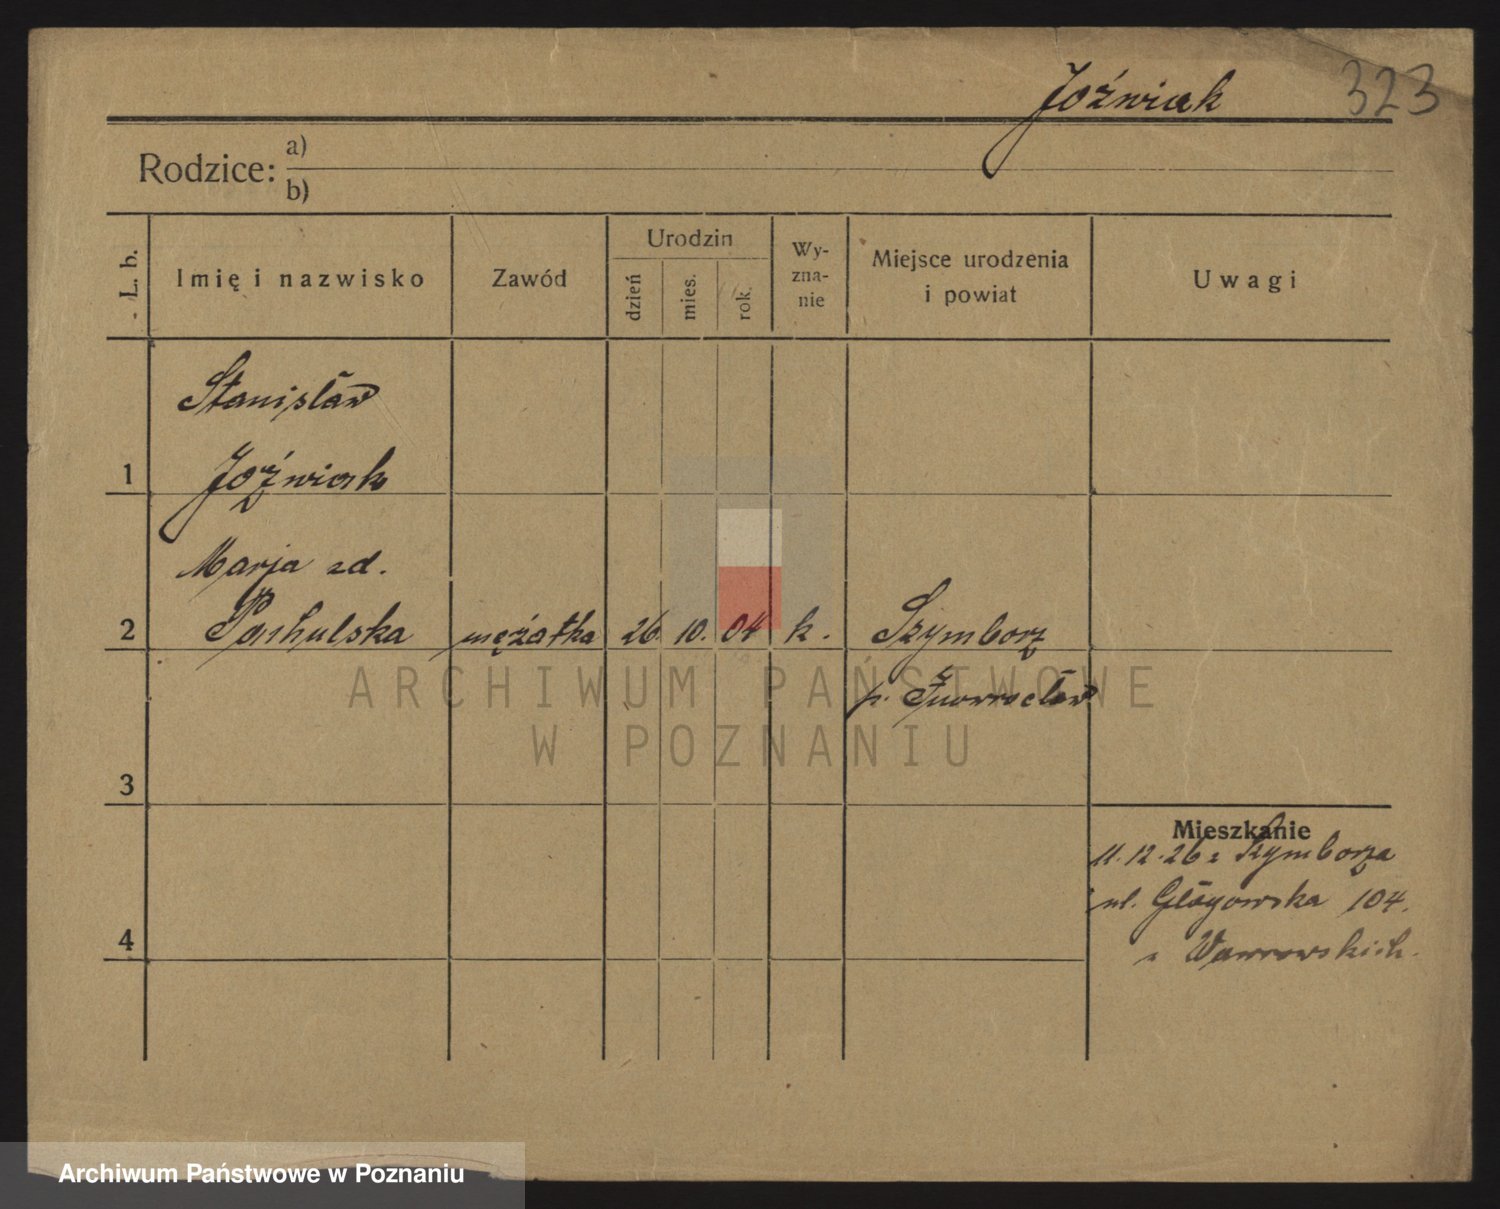 Jóźwiak 323
Rodzice: a)
b)
L. b.
Imię i nazwisko
Zawód
Urodzin
dzień
mies.
rok.
Wy-
zna-
nie
Miejsce urodzenia
i powiat
Uwagi
Stanisław
1 Jóźwiak
Marja zd.
2 mężatka 26. 10. 04 k. Szymborz
p. Inowrocław
3
Mieszkanie
11.12.26 z Szymborza
ul. Głogowska 104.
4 Wawrowskich.
ARCHIWUM PAŃSTWOWE
W POZNANIU
Archiwum Państwowe w Poznaniu